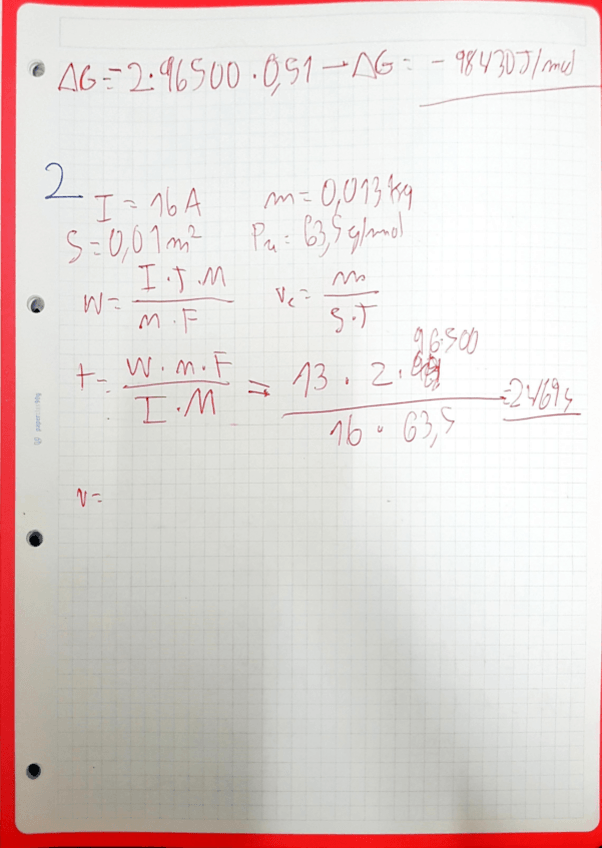 ΔG=-2·96500·0,51→ΔG= -98430J/mol
2
I=16A m=0,013kg
S=0,01m² Pu=63,5g/mol
W= I·T·M / m·F vc= m / S·T
t= W·m·F / I·M = 13·2·96500 / 16·63,5 =2469s
v=